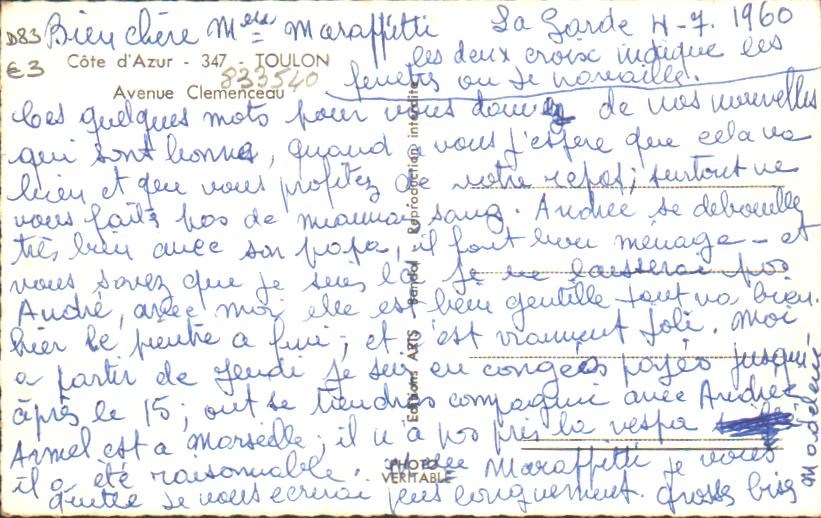 D83
€3
Bien chère Mme Maraffitti
La Garde 4-7. 1960
Côte d'Azur - 347 - TOULON
833540
Avenue Clemenceau
les deux croix indique les
fenetres ou je travaille.
Ces quelques mots pour vous donner de nos nouvelles
qui sont bonnes, quand a vous j'espere que cela va
bien et que vous profitez de votre repos; surtout ne
vous faits pas de mauvais sang. Andrée se debrouille
très bien avec son papa, il font bon ménage - et
vous savez que je suis là je ne laisserai pas
André, avec moi elle est bien gentille tout va bien.
hier le peintre a fini; et c'est vraiment joli. Moi
a partir de Jeudi je suis en congées payés jusqu'
âprès le 15; ont se tiendras compagnie avec Andrée
Armel est a Marseille; il n'à pas pris la vespa
il a été raisonnable. Maraffitti je vous
quitte je vous ecrirai plus longuement. Grosses bises
Madeleine
Editions ARTS Bandol Reproduction interdite
PHOTO
VERITABLE